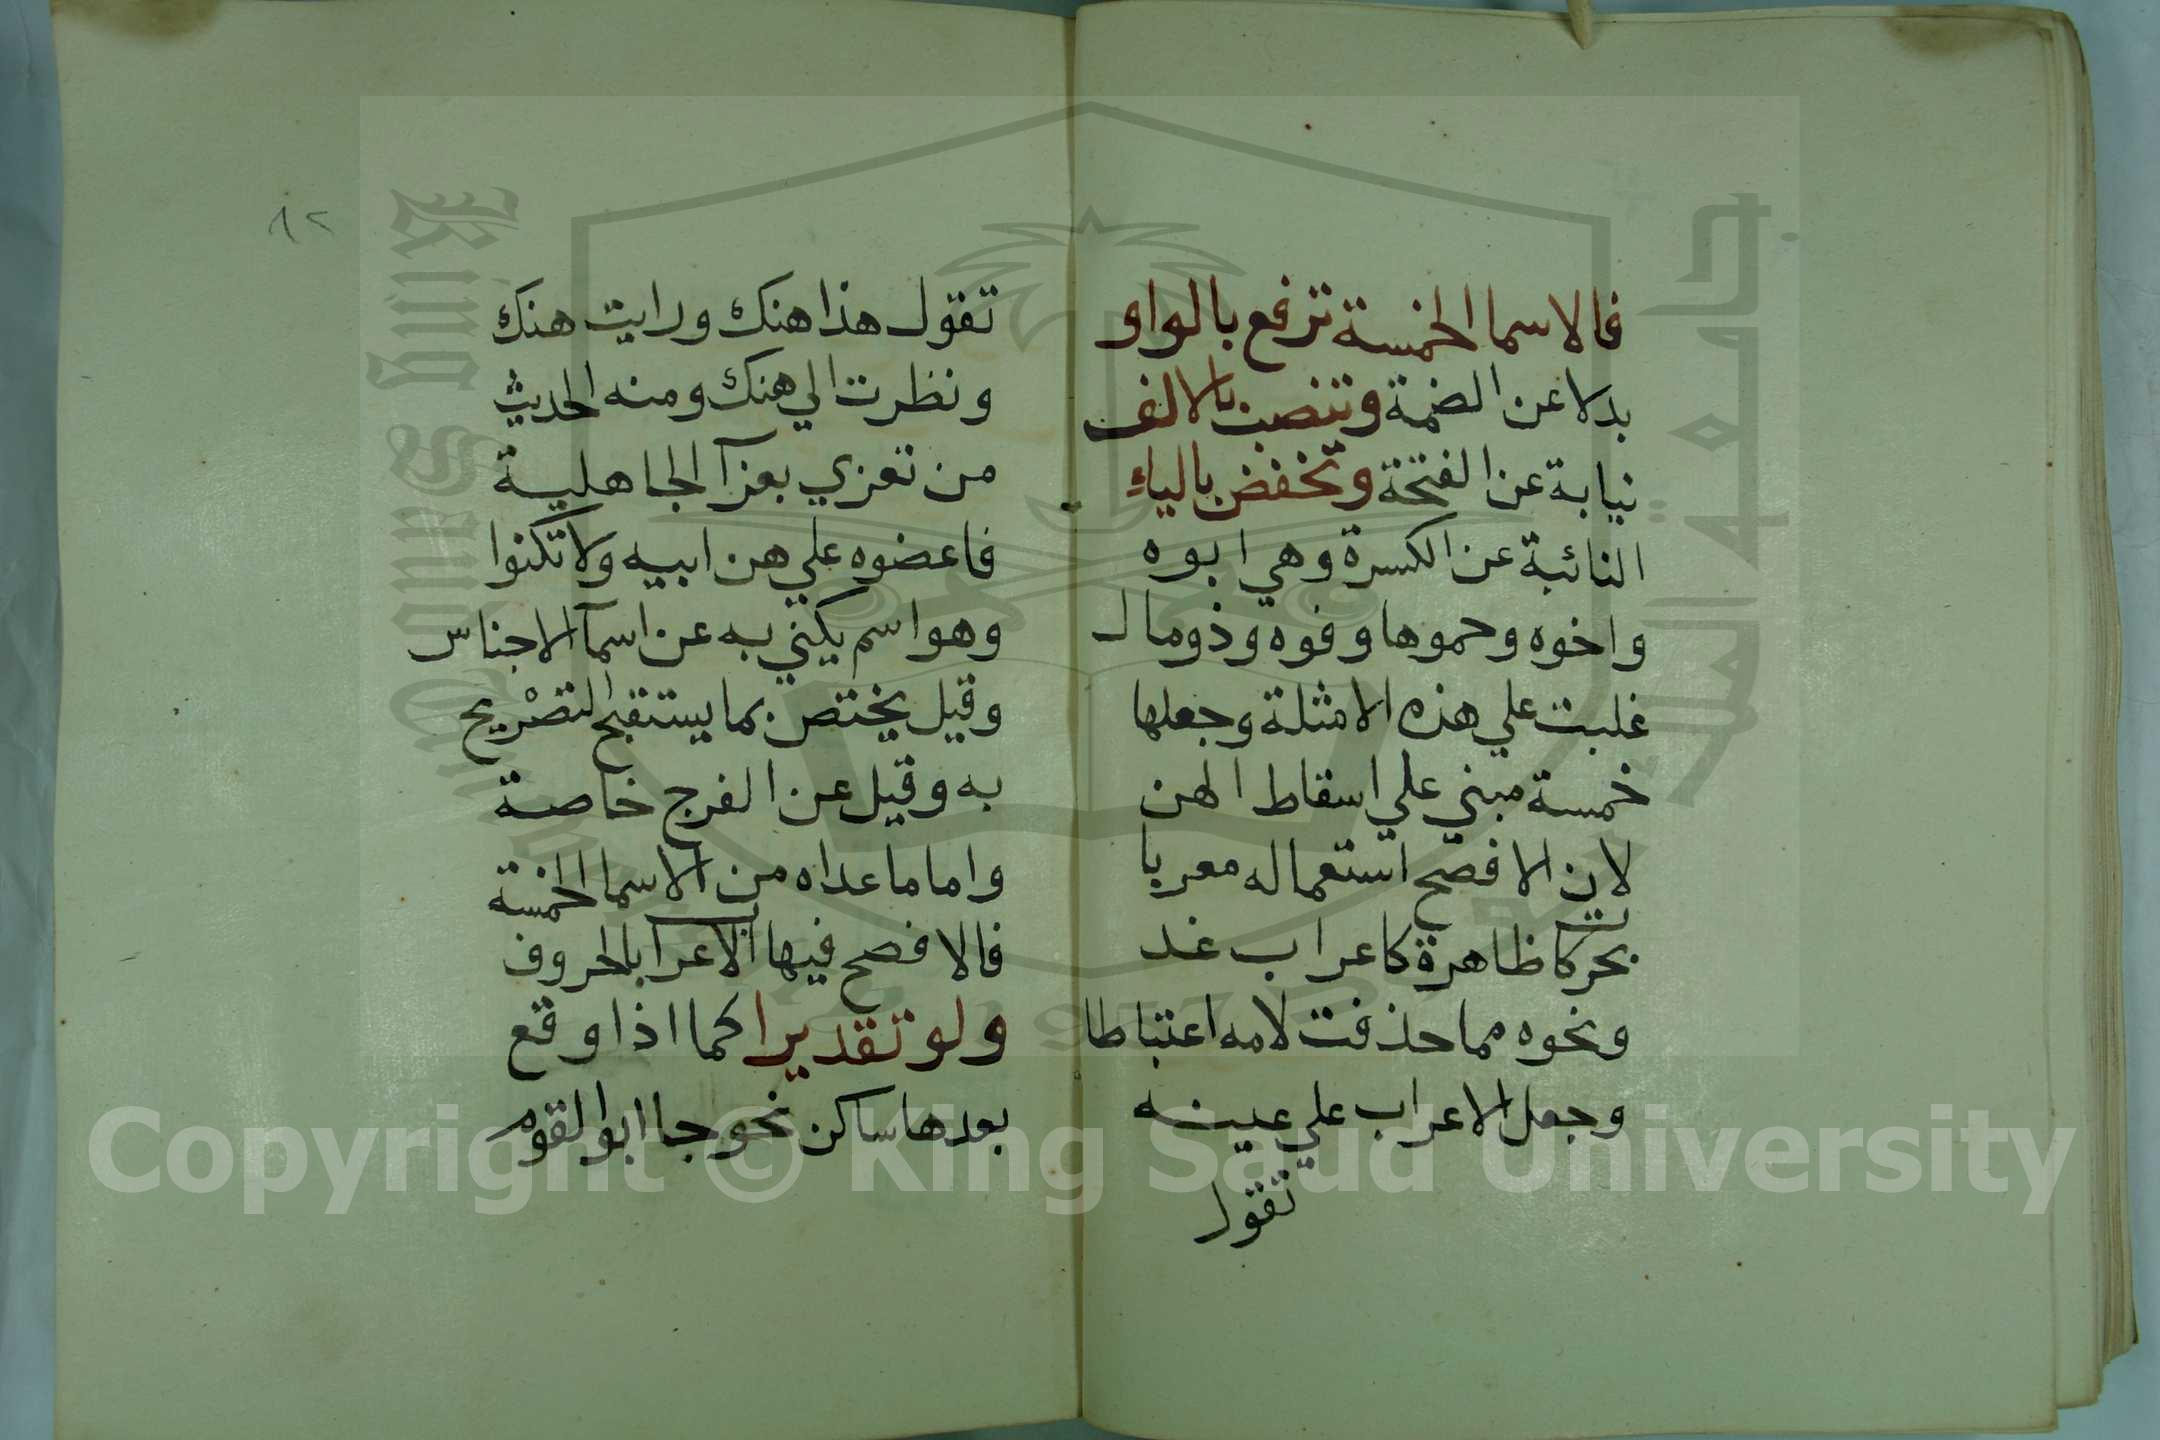 فالاسما الخمسة ترفع بالواو
بدلا عن الضمة وتنصب بالالف
نيابة عن الفتحة وتخفض بالياء
النائبة عن الكسرة وهي ابوه
واخوه وحموها وفوه وذو مال
غلبت علي هذه الامثلة وجعلها
خمسة مبني علي اسقاط الهن
لان الافصح استعماله معربا
بحركات ظاهرة كاعراب غد
ونحوه مما حذفت لامه اعتباطا
وجعل الاعراب علي عينه
تقول
٨٢
تقول هذا هنك ورايت هنك
ونظرت الي هنك ومنه الحديث
من تعزي بعزآ الجاهلية
فاعضوه علي هن ابيه ولا تكنوا
وهو اسم يكني به عن اسمآ الاجناس
وقيل يختص بما يستقبح التصْريح
به وقيل عن الفرج خاصة
واما ما عداه من الاسما الخمسة
فالافصح فيها الاعراب بالحروف
ولو تقديرا كما اذا وقع
بعدها ساكن نحو جا ابوا القوم
جامعة الملك سعود
King Saud University
1957
Copyright © King Saud University